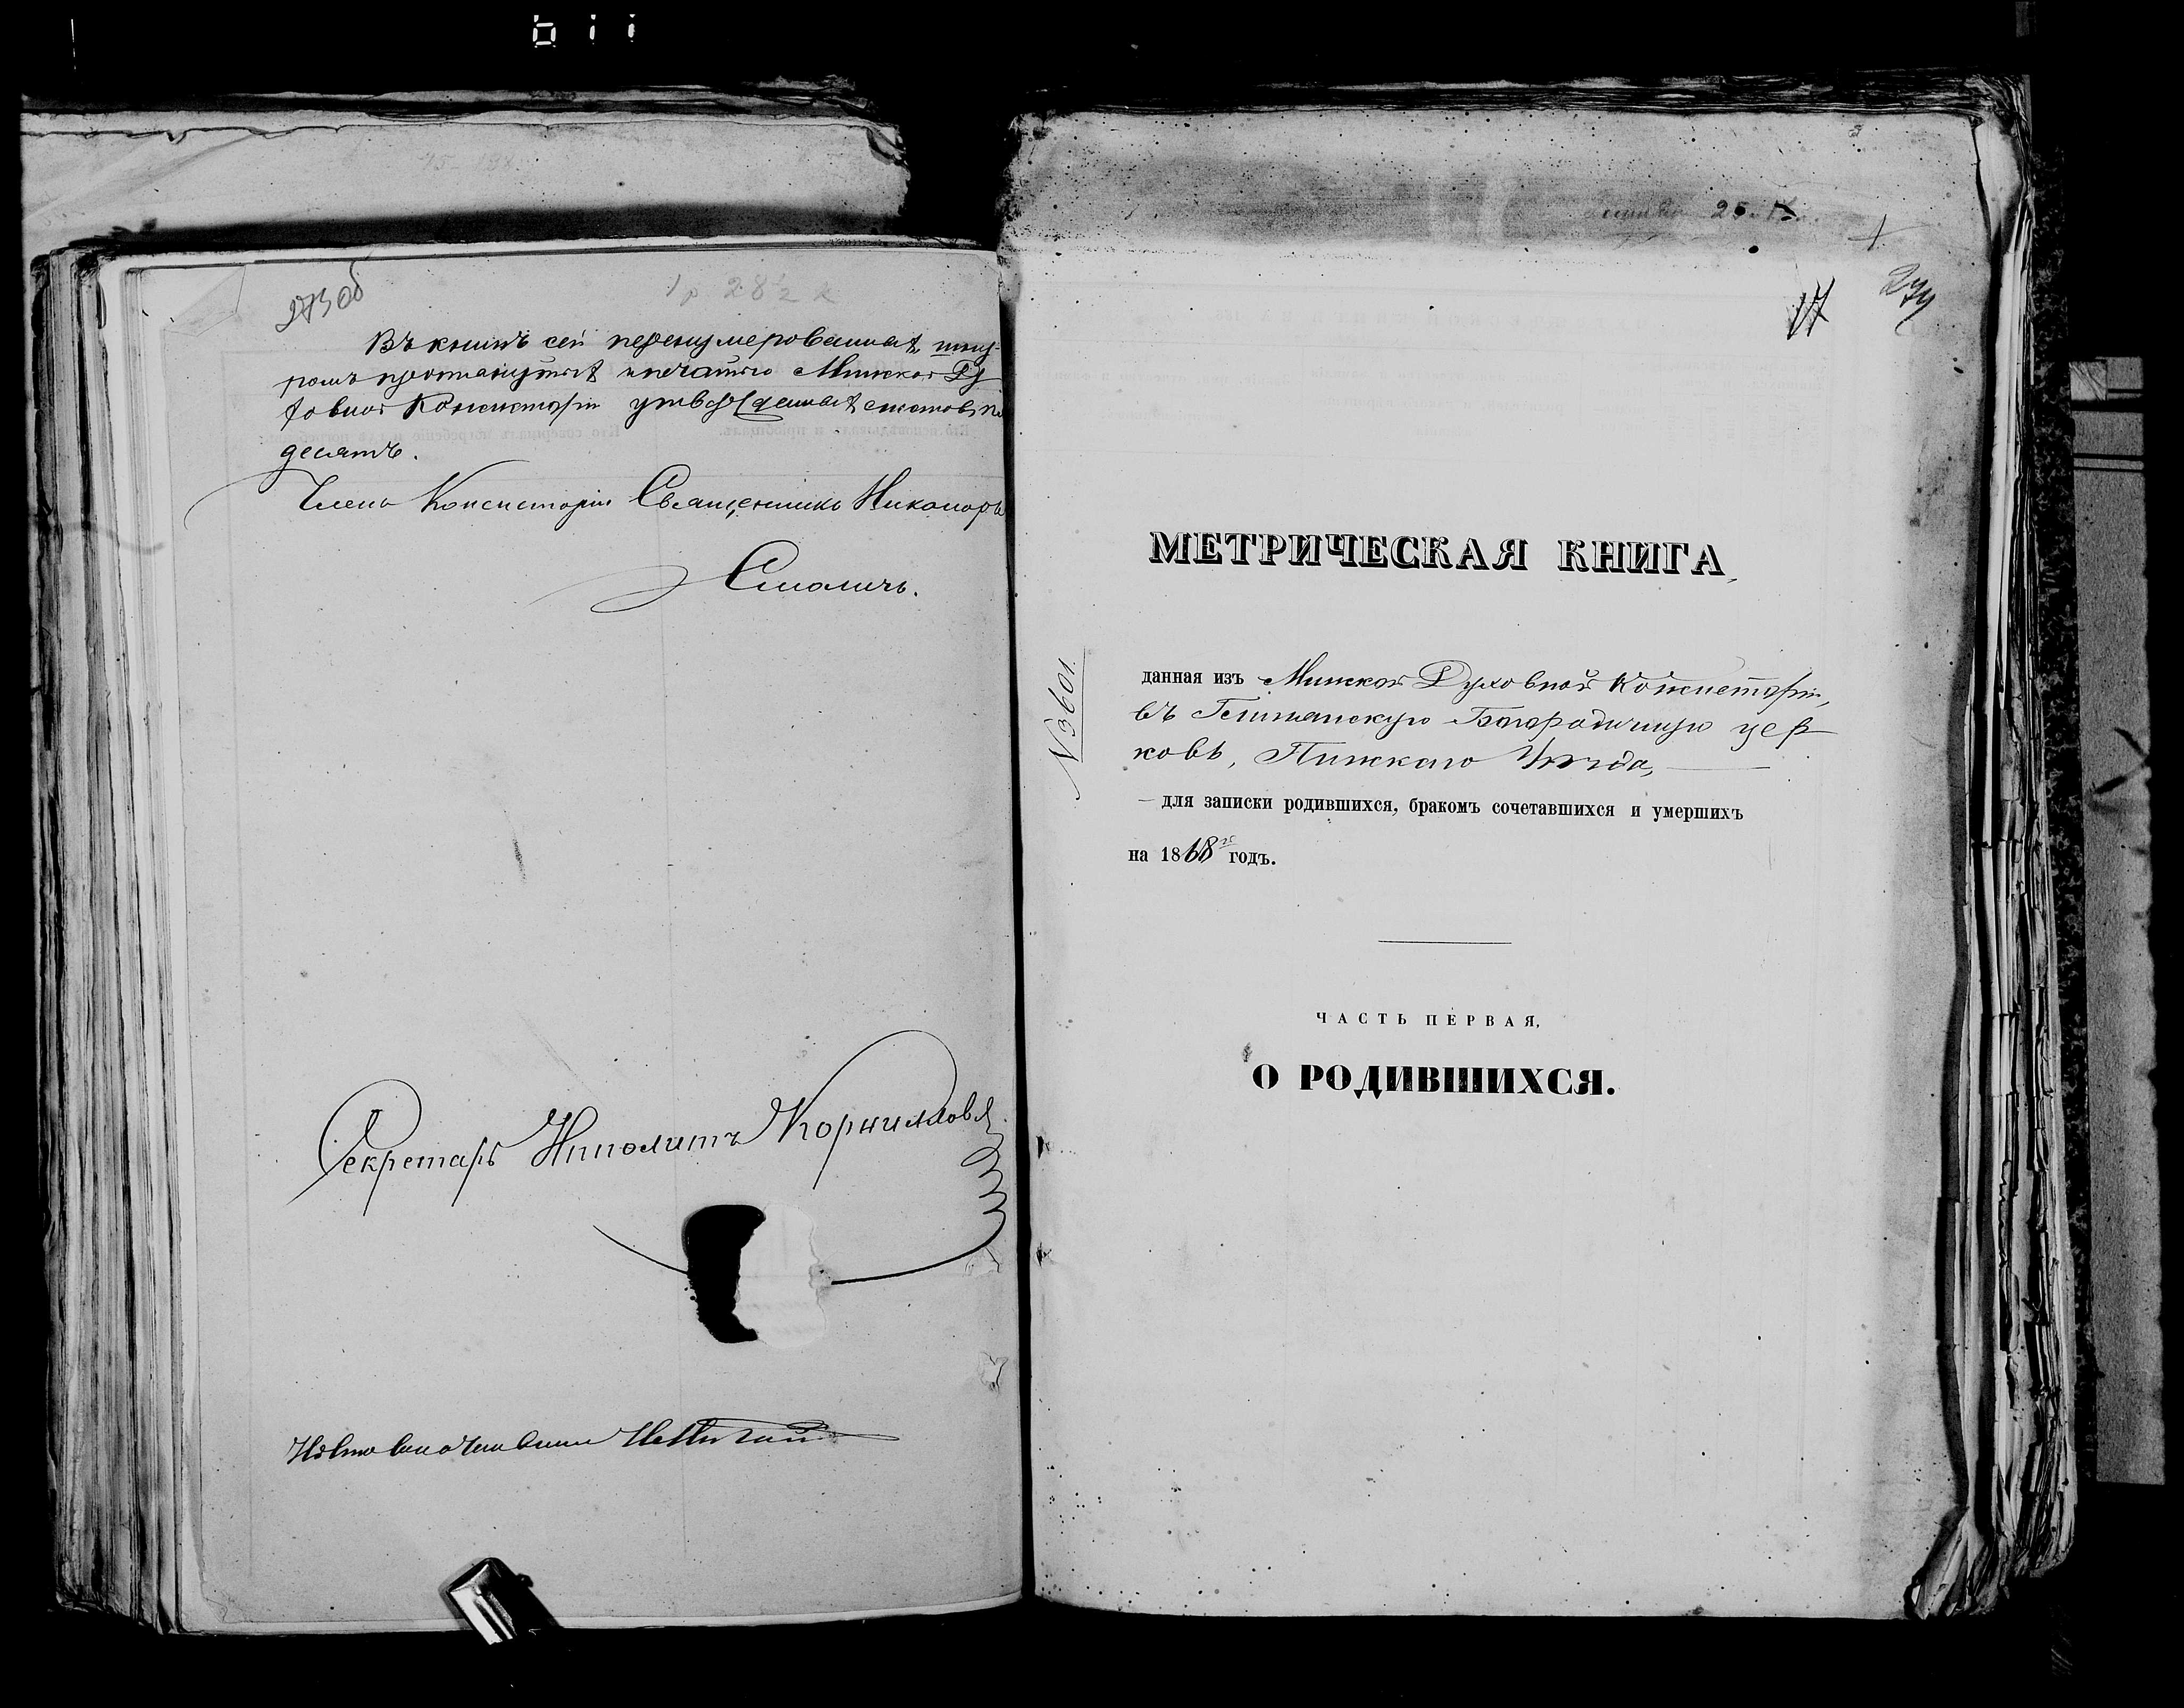 273 об
Въ книгѣ сей перенумерованной, шну-
ромъ прошнурованной и печатью Минской Ду
ховной Консисторіи утвержденной листовъ
десять.
Членъ Консисторіи Священникъ Никаноръ
Смоличъ.
Секретарь Ипполитъ Корниловъ
274
17
МЕТРИЧЕСКАЯ КНИГА,
№ 3601
данная изъ Минской Духовной Консисторіи,
въ Богородичную цер
ковь, Пинскаго Уѣзда,
для записки родившихся, бракомъ сочетавшихся и умершихъ
на 1868й годъ.
ЧАСТЬ ПЕРВАЯ,
О РОДИВШИХСЯ.